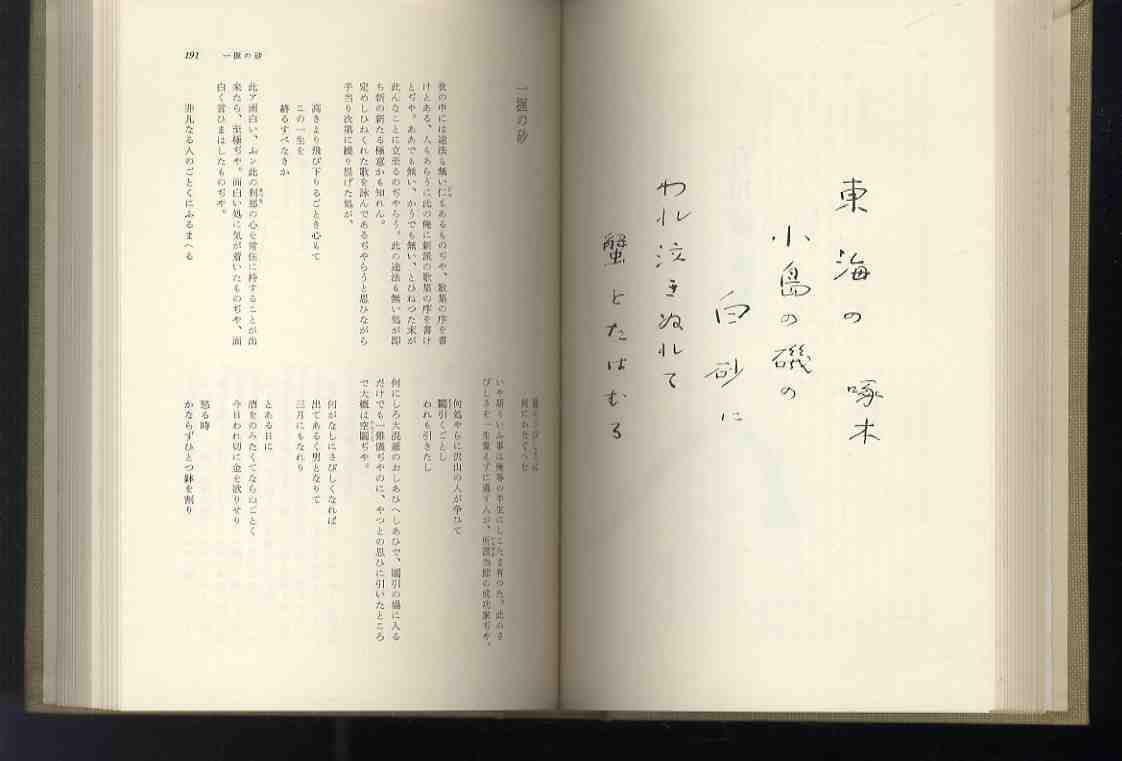 東海の 啄木
小島の磯の
白砂に
われ泣きぬれて
蟹とたはむる
一握の砂
世の中には途法も無い仁もあるものぢや、歌集の序を書
けとある、人もあらうに此の俺に新派の歌集の序を書け
とぢや。ああでも無い、かうでも無い、とひねつた末が
此んなことに立至るのぢやらう。此の途法も無い処が即
ち新の新たる極意かも知れん。
定めしひねくれた歌を詠んであるぢやらうと思ひながら
手当り次第に繰り展げた処が、
高きより飛び下りるごとき心もて
この一生を
終るすべなきか
此ア面白い、ふン此の刹那の心を常住に持することが出
来たら、至極ぢや。面白い処に気が着いたものぢや、面
白く言ひまはしたものぢや。
非凡なる人のごとくにふるまへる
後のさびしさは
何にかたぐへむ
いや斯ういふ事は俺等の半生にしこたま有つた。此のさ
びしさを一生覚えずに過す人が、所謂当節の成功家ぢや。
何処やらに沢山の人が争ひて
鬮引くごとし
われも引きたし
何にしろ大混雑のおしあひへしあひで、鬮引の場に入る
だけでも一難儀ぢやのに、やつとの思ひに引いたところ
で大概は空鬮ぢや。
何がなしにさびしくなれば
出てあるく男となりて
三月にもなれり
とある日に
酒をのみたくてならぬごとく
今日われ切に金を欲りせり
怒る時
かならずひとつ鉢を割り
191 一握の砂